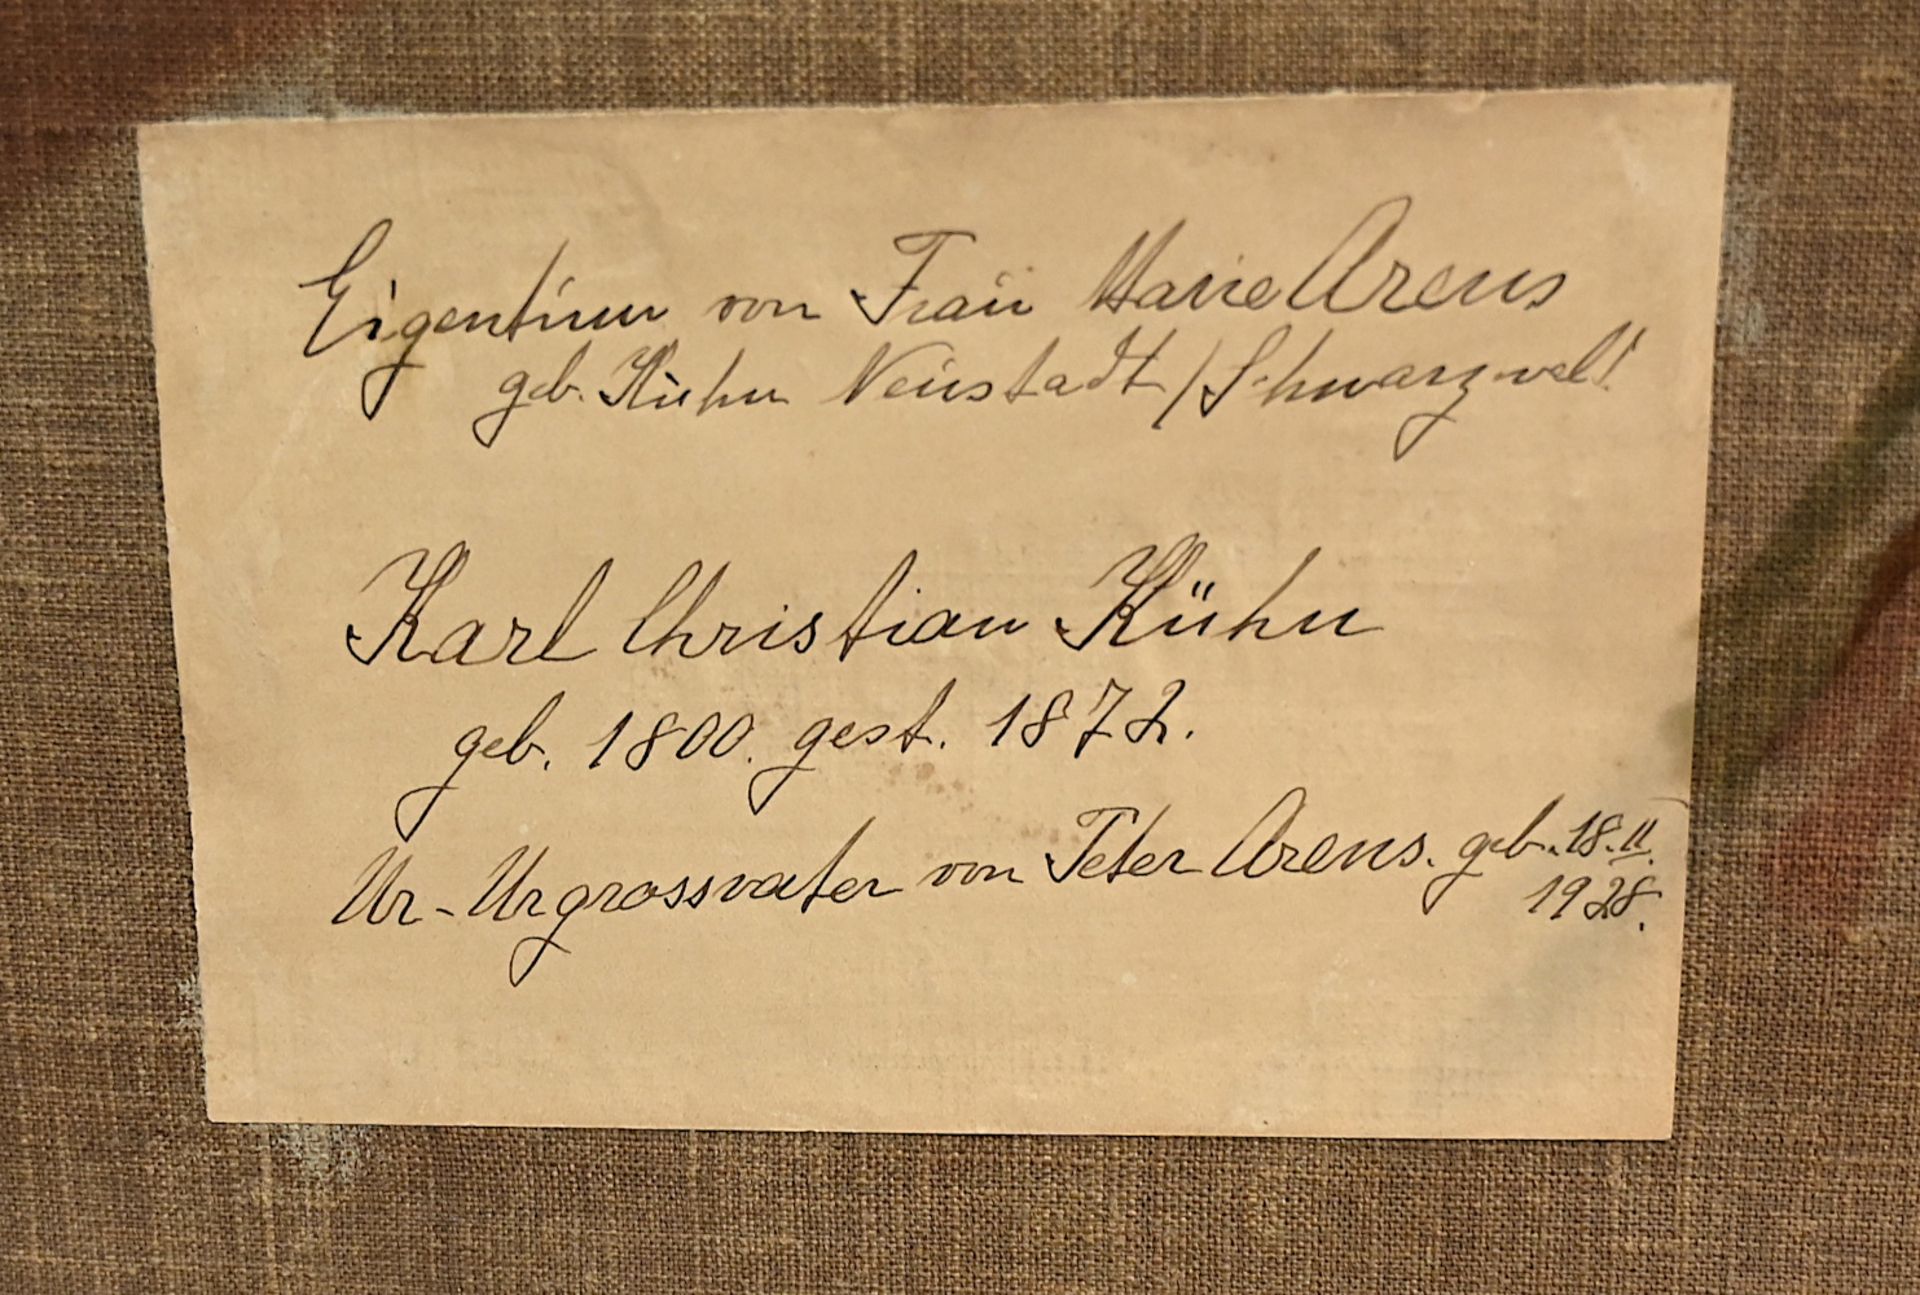 Eigentum von Frau Marie Arens
geb. Kühn Neustadt / Schwarzwald
Karl Christian Kühn
geb. 1800. gest. 1872.
Ur-Urgrossvater von Peter Arens. geb. 18. II.
1928.